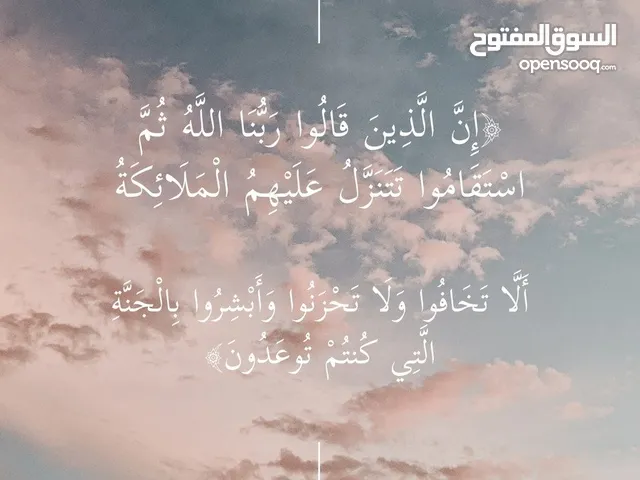 السوق المفتوح
opensooq.com
﴿إِنَّ الَّذِينَ قَالُوا رَبُّنَا اللَّهُ ثُمَّ
اسْتَقَامُوا تَتَنَزَّلُ عَلَيْهِمُ الْمَلَائِكَةُ
أَلَّا تَخَافُوا وَلَا تَحْزَنُوا وَأَبْشِرُوا بِالْجَنَّةِ
الَّتِي كُنتُمْ تُوعَدُونَ﴾